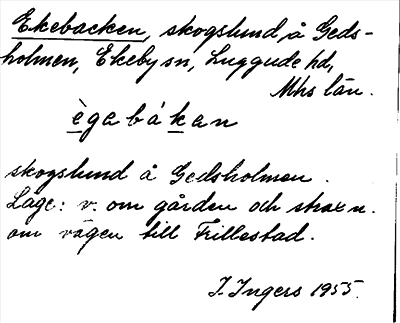 Ekebacken, skogslund å Geds-
holmen, Ekeby sn, Luggude hd,
Mhs län.
ègabákan
skogslund å Gedsholmen.
Läge: v. om gården och strax n.
om vägen till Frillestad.
I. Ingers 1955.